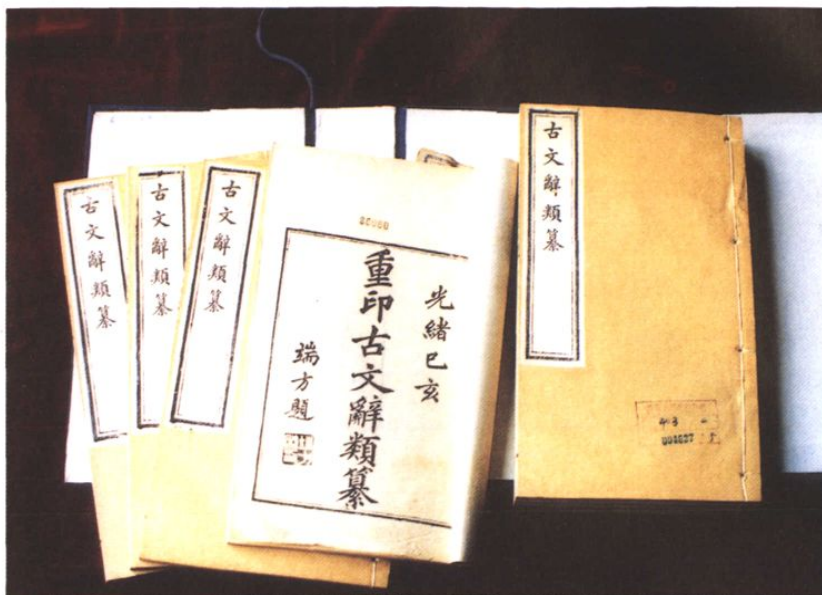 古文辭類纂
古文辭類纂
古文辭類纂
光緒已亥
重印古文辭類纂
端方題
古文辭類纂
004627